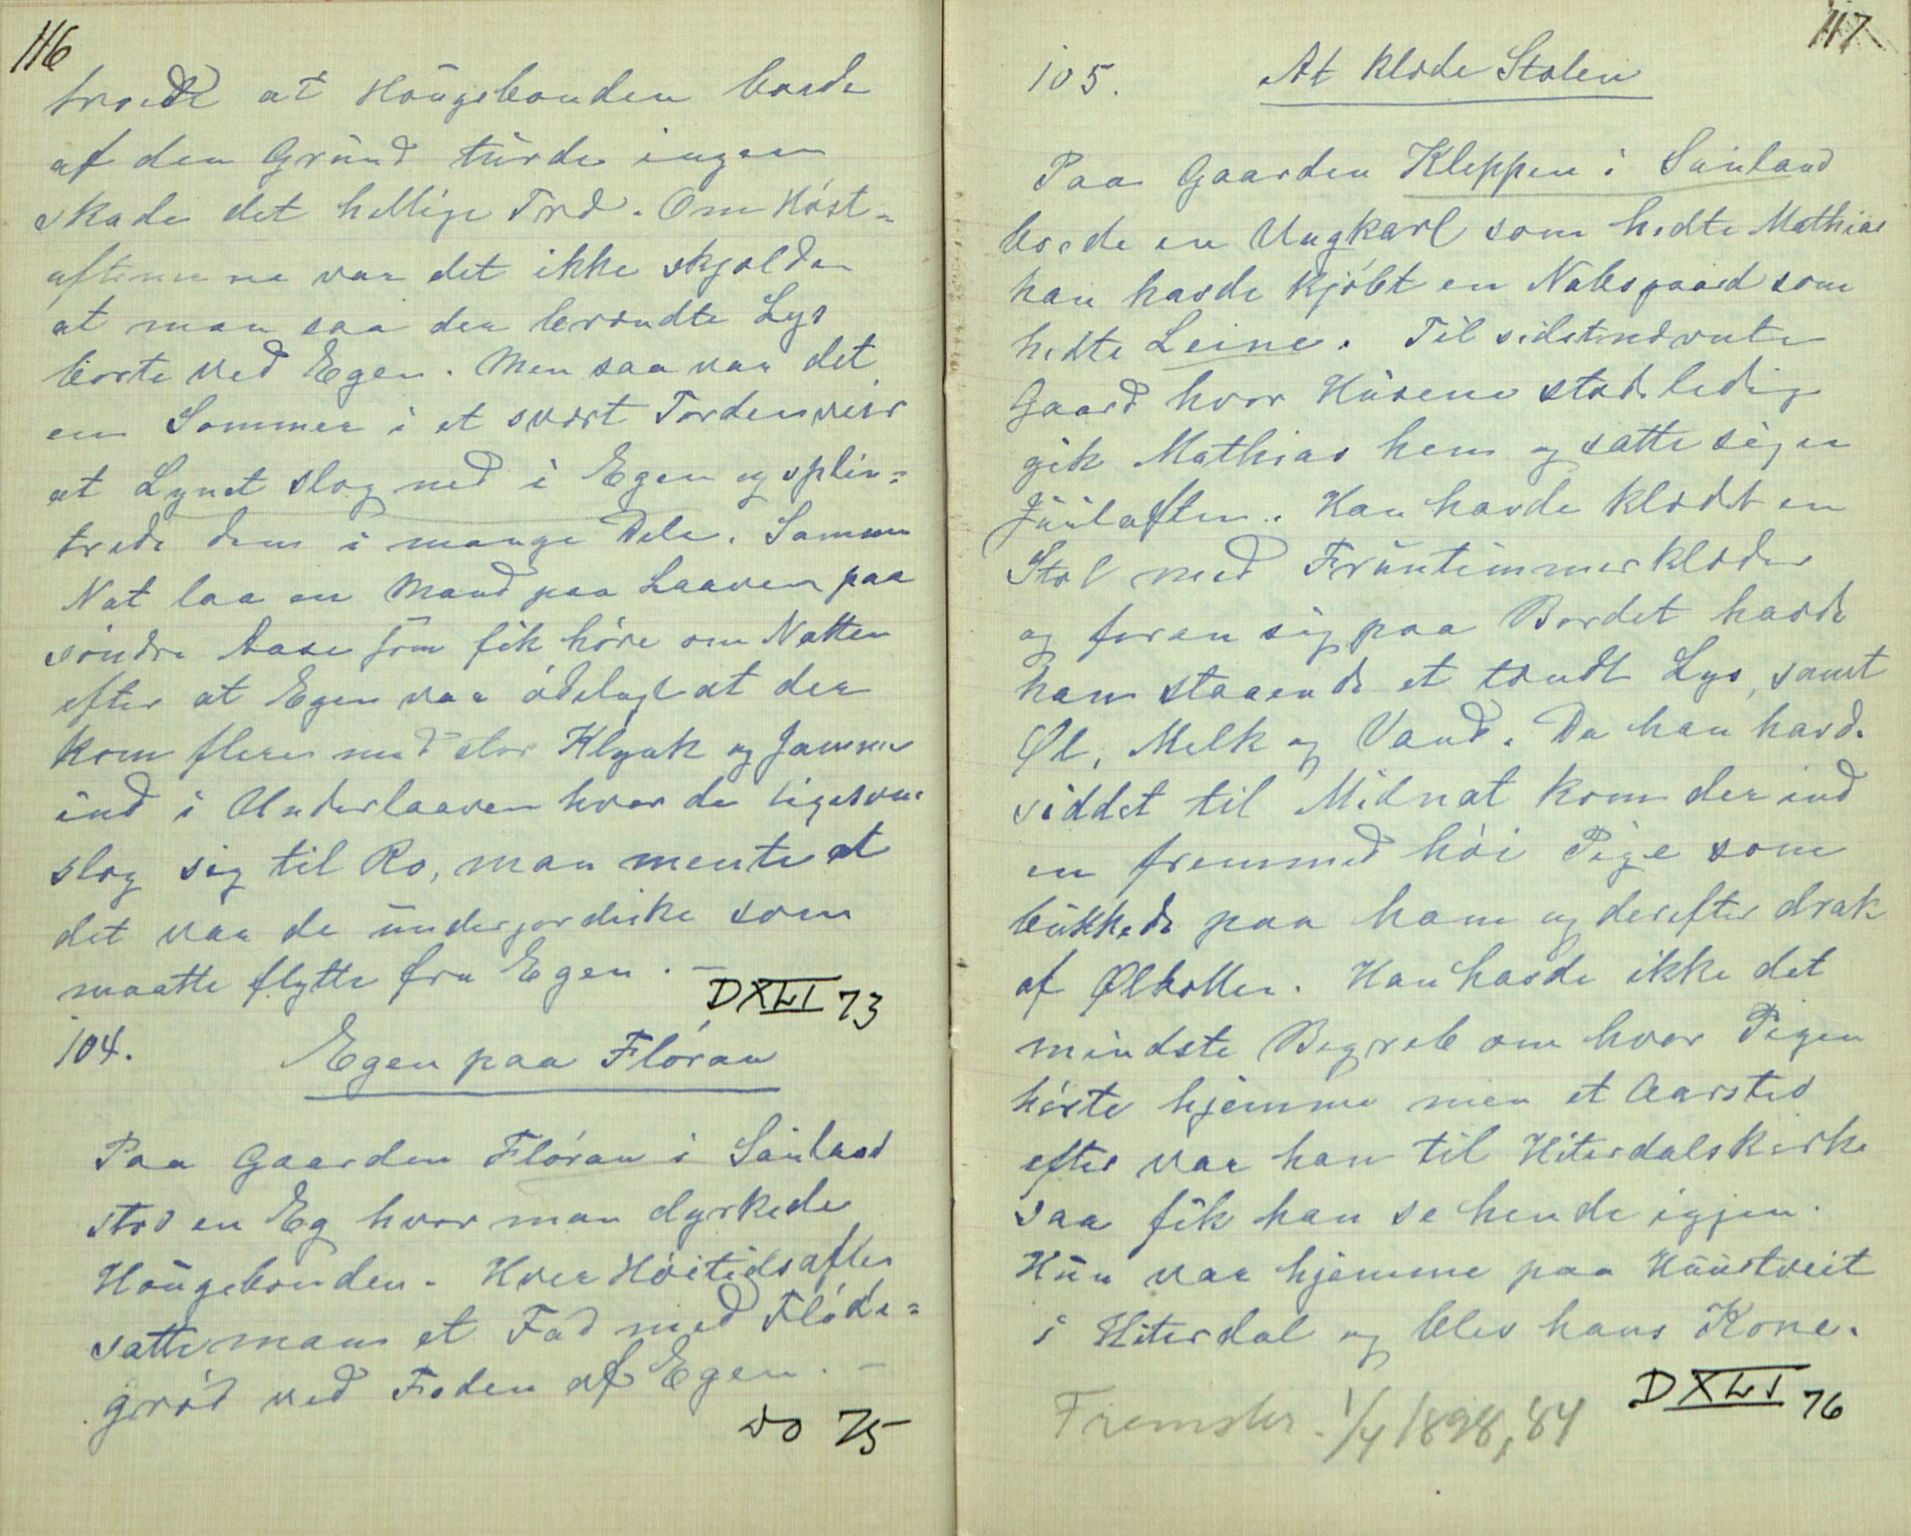 116
troede at Haugebonden boede
af den Grund turde ingen
skade det hellige Træ. Om Høst-
aftenerne var det ikke skjelden
at man saa der brændte Lys
borte ved Egen. Men saa var det
en Sommer i et svært Tordenveir
at Lynet slog ned i Egen og splin-
trede dem i mange Dele. Samme
Nat laa en Mand paa Laaven paa
søndre Aase som fik høre om Natten
efter at Egen var ødelagt at der
kom flere med stor Klynk og Jammer
ind i Underlaaven hvor de ligesom
slog sig til Ro, man mente at
det var de underjordiske som
maatte flytte fra Egen. —
DXLI 73
104. Egen paa Flóran
Paa Gaarden Flóran i Sauland
stod en Eg hvor man dyrkede
Haugebonden. Hver Høitidsaften
satte man et Fad med Fløde-
grød ved Foden af Egen. —
do 75
117
105. At klæde Stolen
Paa Gaarden Kleppen i Sauland
boede en Ungkarl som hedte Mathias
han havde kjøbt en Nabogaard som
hedte Leine. Til sidstnævnte
Gaard hvor Husene stod ledig
gik Mathias hen og satte sig en
Juulaften. Han havde klædt en
Stol med Fruntimmerklæder
og foran sig paa Bordet havde
han staaende et tændt Lys, samt
Øl, Melk og Vand. Da han havde
siddet til Midnat kom der ind
en fremmed høi Pige som
bukkede paa ham og derefter drak
af Ølbollen. Han havde ikke det
mindste Begreb om hvor Pigen
hørte hjemme men et Aarstid
efter var han til Hiterdalskirke
saa fik han se hende igjen.
Hun var hjemme paa Huustveit
i Hiterdal og blev hans Kone.
DXLI 76
1/4 1898, 84